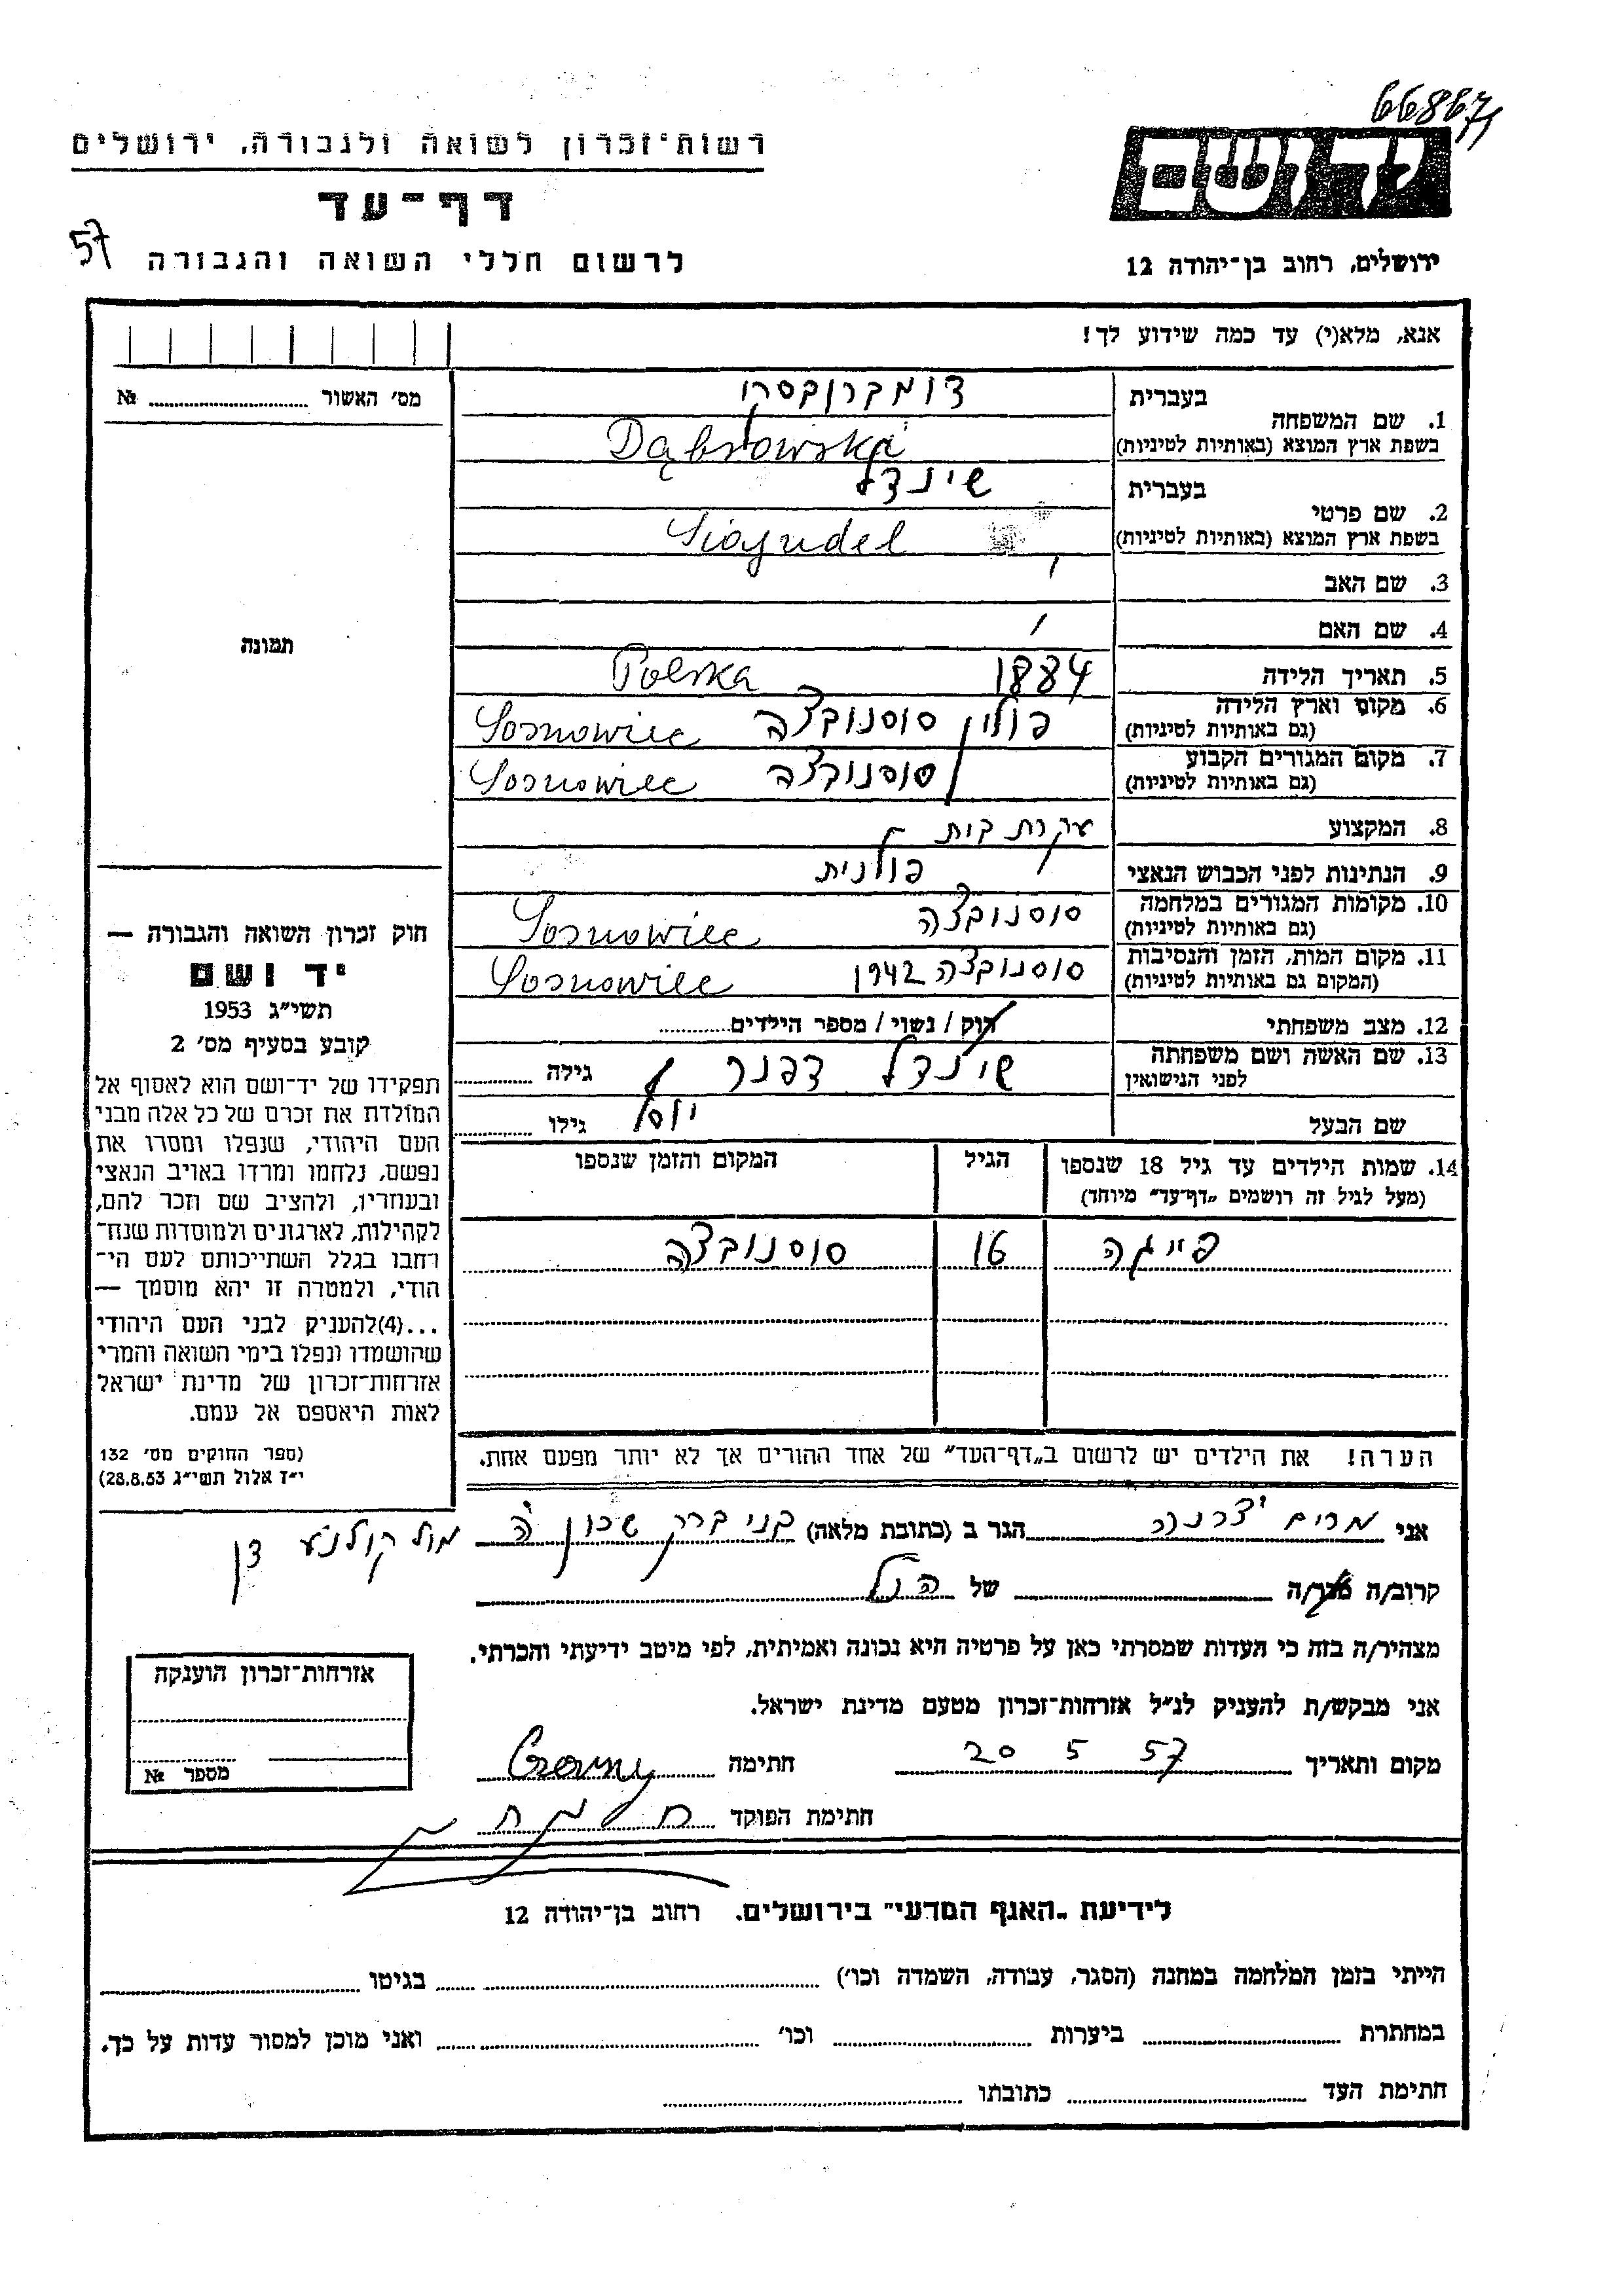 66867
רשות־זכרון לשואה ולגבורה, ירושלים
יד ושם
דף־עד
57
לרשום חללי השואה והגבורה
ירושלים, רחוב בן־יהודה 12
אנא, מלא(י) עד כמה שידוע לך!
מס' האשור № ........
בעברית
דומברובסקו
1. שם המשפחה
בשפת ארץ המוצא (באותיות לטיניות)
Dąbrowska
בעברית
שינדל
2. שם פרטי
בשפת ארץ המוצא (באותיות לטיניות)
3. שם האב
4. שם האם
תמונה
5. תאריך הלידה 1884 Polska
6. מקום וארץ הלידה
(גם באותיות לטיניות)
פולין סוסנובצה Sosnowiec
7. מקום המגורים הקבוע
(גם באותיות לטיניות)
סוסנובצה Sosnowiec
8. המקצוע עקרת בית
9. הנתינות לפני הכבוש הנאצי פולנית
10. מקומות המגורים במלחמה
(גם באותיות לטיניות)
סוסנובצה Sosnowiec
11. מקום המות, הזמן והנסיבות
(המקום גם באותיות לטיניות)
סוסנובצה 1942 Sosnowiec
12. מצב משפחתי רווק / נשוי / מספר הילדים........
13. שם האשה ושם משפחתה
לפני הנישואין
שינדל גילה ........
שם הבעל יוסף גילו ........
14. שמות הילדים עד גיל 18 שנספו
(מעל לגיל זה רושמים "דף־עד" מיוחד)
הגיל
המקום והזמן שנספו
פייגה 16 סוסנובצה
הערה! את הילדים יש לרשום ב"דף־העד" של אחד ההורים אך לא יותר מפעם אחת.
חוק זכרון השואה והגבורה —
יד ושם
תשי"ג 1953
קובע בסעיף מס' 2
תפקידו של יד־ושם הוא לאסוף אל
המולדת את זכרם של כל אלה מבני
העם היהודי, שנפלו ומסרו את
נפשם, נלחמו ומרדו באויב הנאצי
ובעוזריו, ולהציב שם וזכר להם,
לקהילות, לארגונים ולמוסדות שנח־
רחבו בגלל השתייכותם לעם הי־
הודי, ולמטרה זו יהא מוסמך —
...(4)להעניק לבני העם היהודי
שהושמדו ונפלו בימי השואה והמרי
אזרחות־זכרון של מדינת ישראל
לאות היאספם אל עמם.
(ספר החוקים מס' 132
י"ז אלול תשי"ג 28.8.53)
אני מרים צרנה הגר ב (כתובת מלאה) בני ברק שכון ה מול קולנע דן
קרוב/ה מכר/ה ........ של הנ"ל
מצהיר/ה בזה כי העדות שמסרתי כאן על פרטיה היא נכונה ואמיתית, לפי מיטב ידיעתי והכרתי.
אני מבקש/ת להעניק לנ"ל אזרחות־זכרון מטעם מדינת ישראל.
מקום ותאריך 20 5 57 חתימה Czerny
חתימת הפוקד
אזרחות־זכרון הוענקה
מספר №
לידיעת "האגף המדעי" בירושלים. רחוב בן־יהודה 12
הייתי בזמן המלחמה במחנה (הסגר, עבודה, השמדה וכו') ........ בגיטו ........
במחתרת ........ ביערות ........ וכו' ........ ואני מוכן למסור עדות על כך.
חתימת העד ........ כתובתו ........